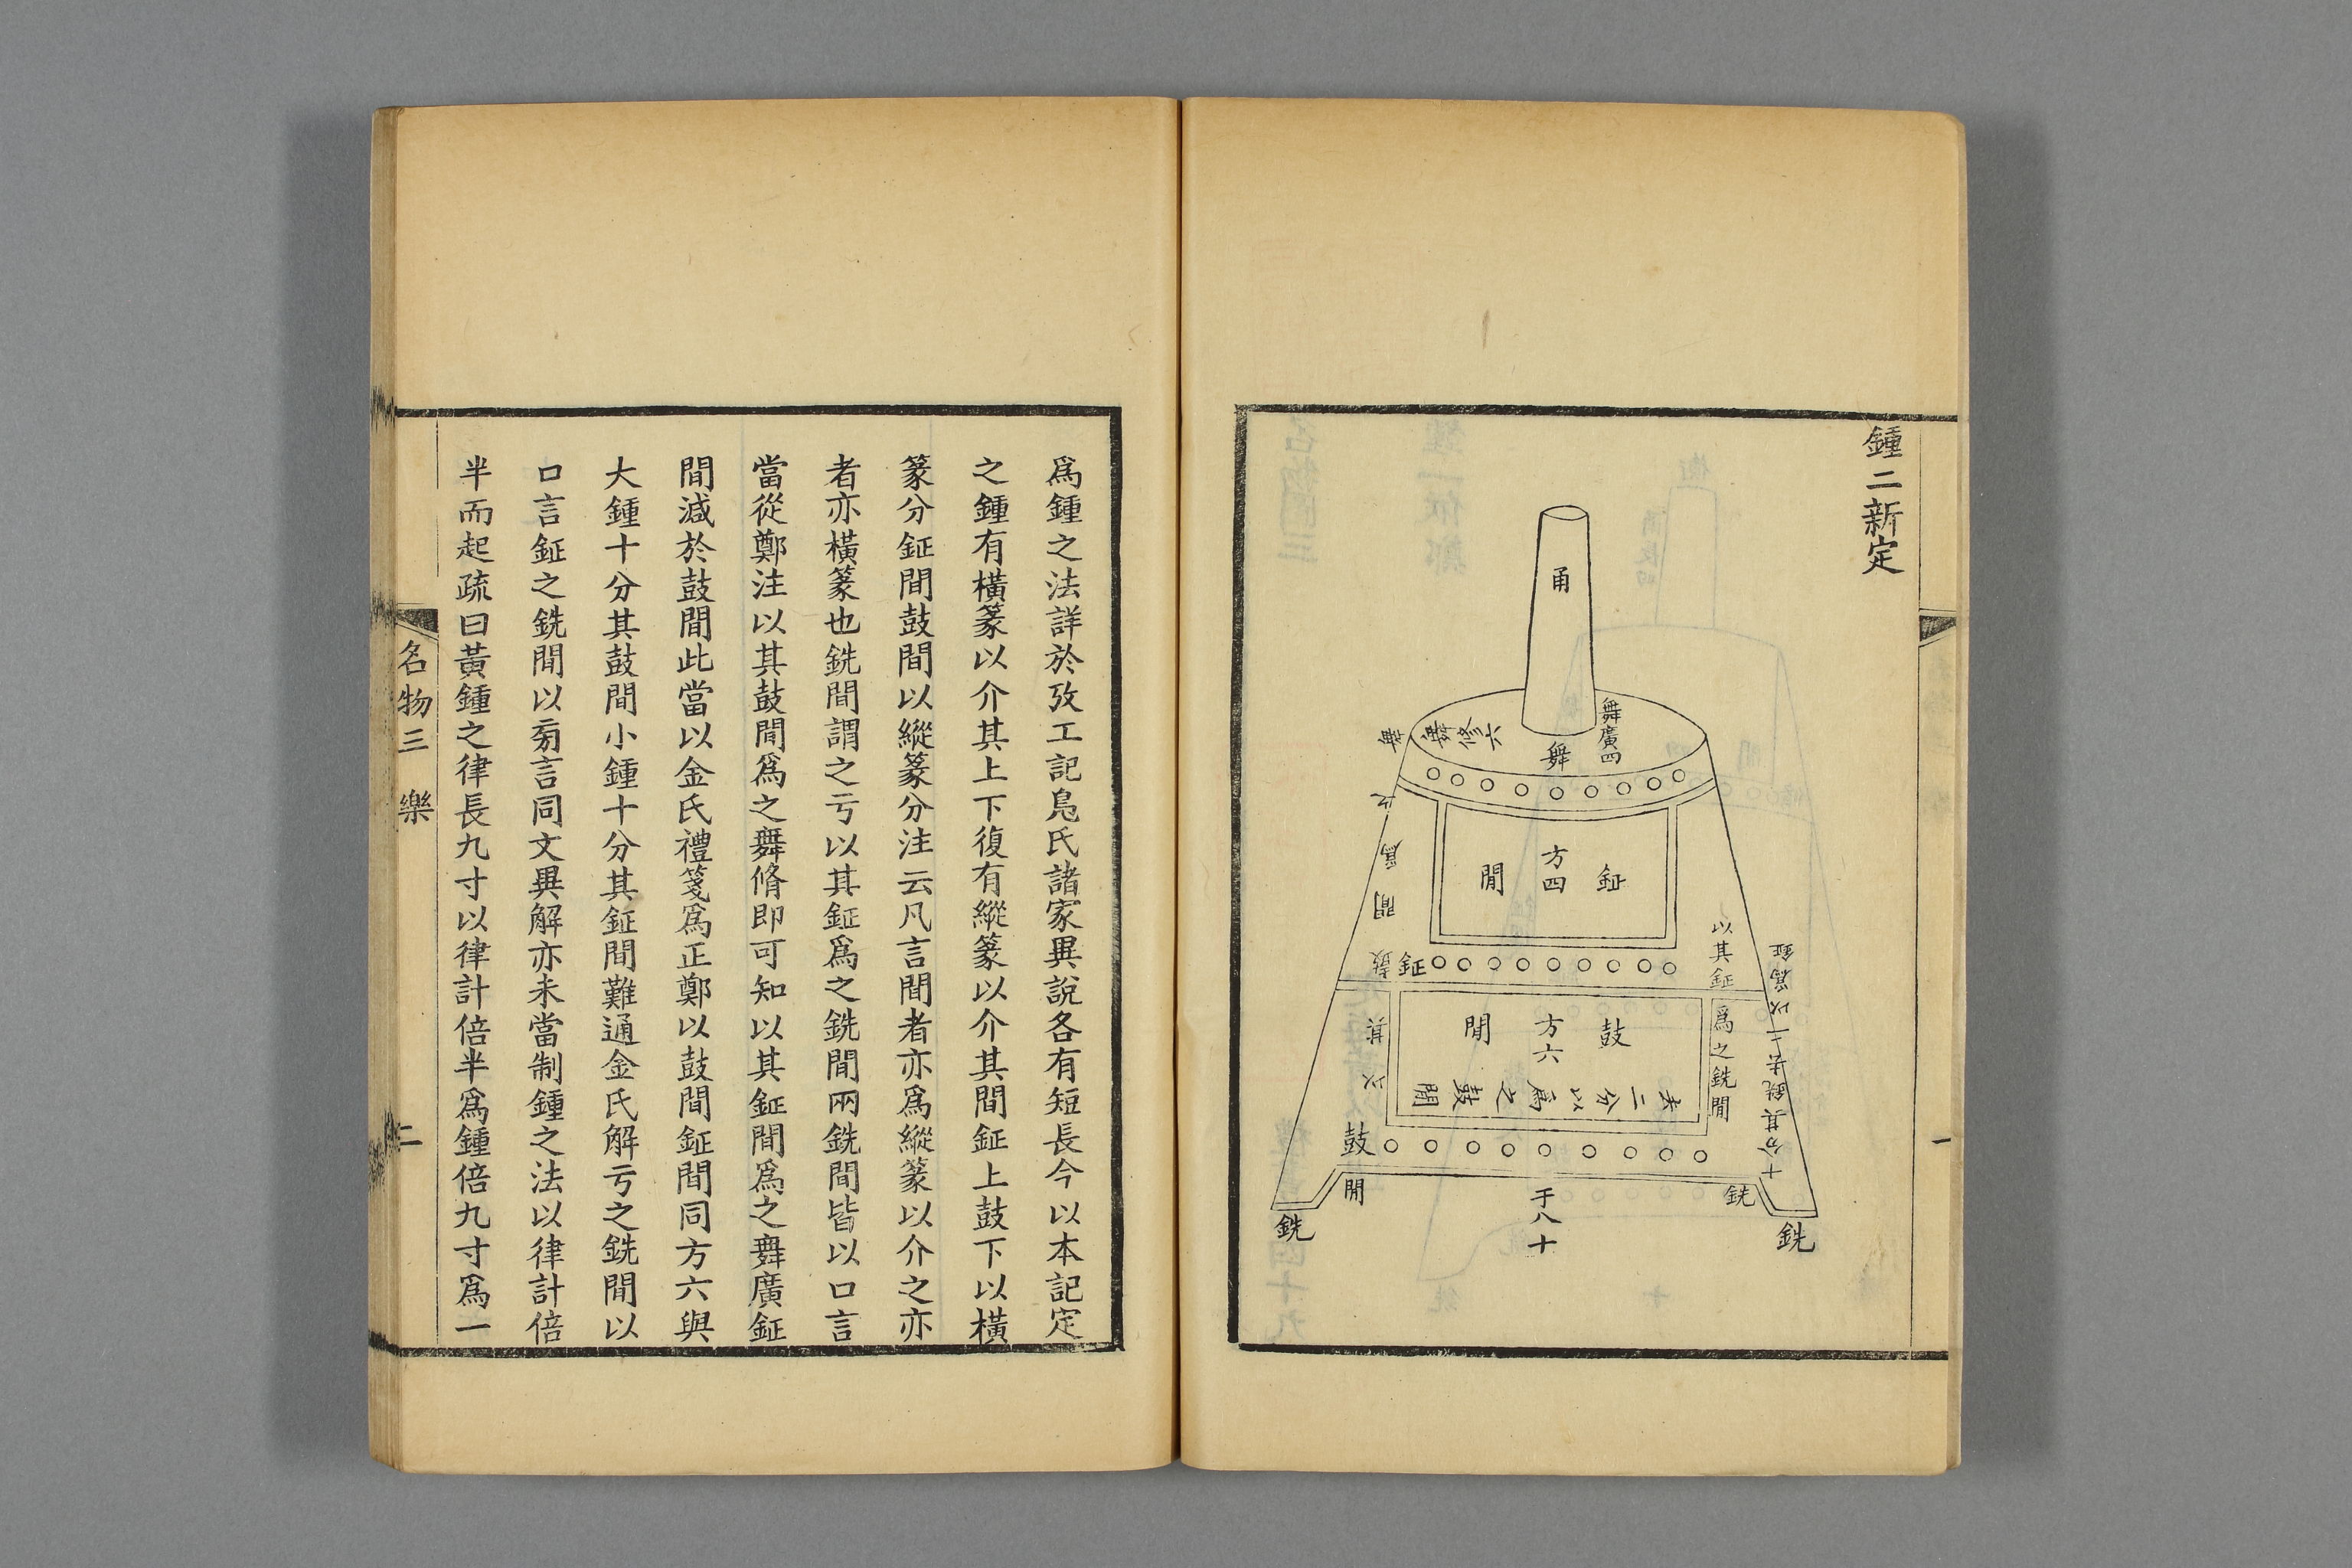 鍾二新定
甬
舞廣四
舞
舞修六
舞
鉦
方四
間
鉦
以其鉦
爲之銑間
鼓
方六
間
去二分以爲之鼓間
十分其銑去二以爲鉦
以其鼓間爲之
鼓
間
于八十
銑
銑
銑
一
爲鍾之法詳於攷工記鳧氏諸家異說各有短長今以本記定
之鍾有橫篆以介其上下復有縱篆以介其間鉦上鼓下以橫
篆分鉦間鼓間以縱篆分注云凡言間者亦爲縱篆以介之亦
者亦橫篆也銑間謂之亏以其鉦爲之銑間兩銑間皆以口言
當從鄭注以其鼓間爲之舞脩即可知以其鉦間爲之舞廣鉦
間減於鼓間此當以金氏禮箋爲正鄭以鼓間鉦間同方六與
大鍾十分其鼓間小鍾十分其鉦間難通金氏解亏之銑間以
口言鉦之銑間以㫄言同文異解亦未當制鍾之法以律計倍
半而起疏曰黃鍾之律長九寸以律計倍半爲鍾倍九寸爲一
名物三 樂
二